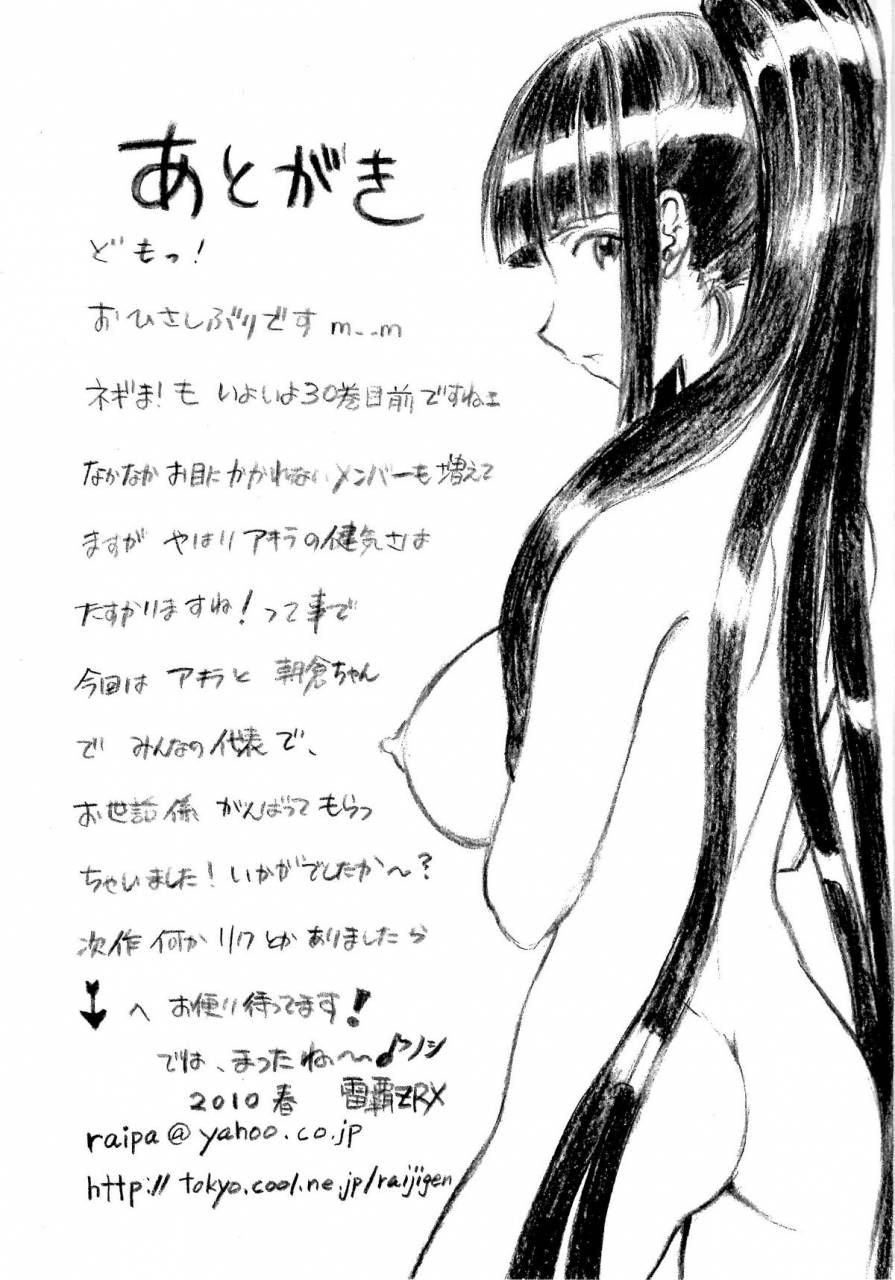 あとがき
どもっ!
おひさしぶりです m--m
ネギま!も いよいよ30巻目前ですねェ
なかなか お目にかかれないメンバーも増えて
ますが やはり アキラの健気さは
たすかりますね!って事で
今回は アキラと 朝倉ちゃん
で みんなの代表で、
お世話係 がんばって もらっ
ちゃいました!いかがでしたか〜?
次作 何か リクとか ありましたら
↓ へ お便り待ってます!
では、まったねぃ〜〜♪ノシ
2010 春 雷覇ZRX
raipa@yahoo.co.jp
http://tokyo.cool.ne.jp/raijigen